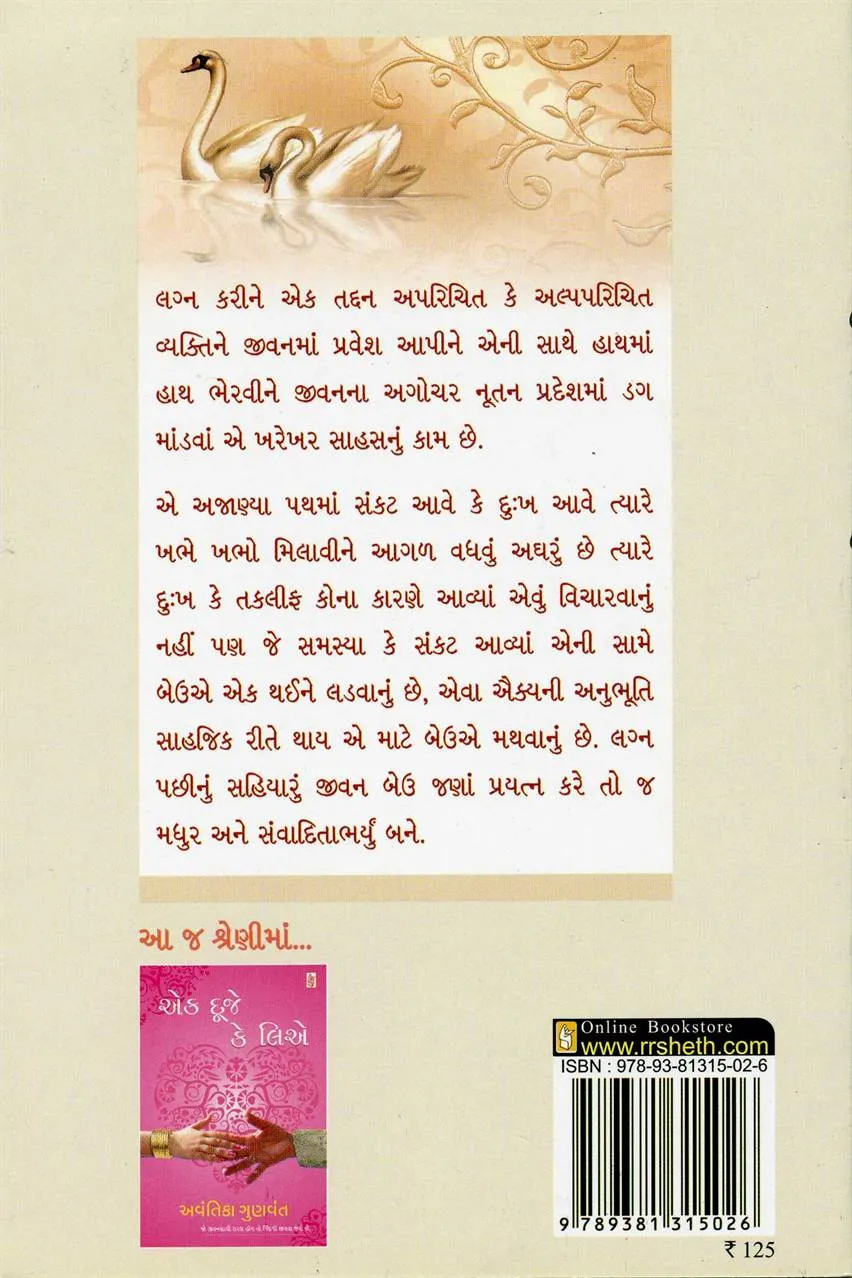 લગ્ન કરીને એક તદ્દન અપરિચિત કે અલ્પપરિચિત
વ્યક્તિને જીવનમાં પ્રવેશ આપીને એની સાથે હાથમાં
હાથ ભેરવીને જીવનના અગોચર નૂતન પ્રદેશમાં ડગ
માંડવાં એ ખરેખર સાહસનું કામ છે.
એ અજાણ્યા પથમાં સંકટ આવે કે દુઃખ આવે ત્યારે
ખભે ખભો મિલાવીને આગળ વધવું અઘરું છે ત્યારે
દુઃખ કે તકલીફ કોના કારણે આવ્યાં એવું વિચારવાનું
નહીં પણ જે સમસ્યા કે સંકટ આવ્યાં એની સામે
બેઉએ એક થઈને લડવાનું છે, એવા ઐક્યની અનુભૂતિ
સાહજિક રીતે થાય એ માટે બેઉએ મથવાનું છે. લગ્ન
પછીનું સહિયારું જીવન બેઉ જણાં પ્રયત્ન કરે તો જ
મધુર અને સંવાદિતાભર્યું બને.
આ જ શ્રેણીમાં...
એક દૂજે
કે લિએ
અવંતિકા ગુણવંત
Online Bookstore
www.rrsheth.com
ISBN : 978-93-81315-02-6
9 789381 315026
₹ 125